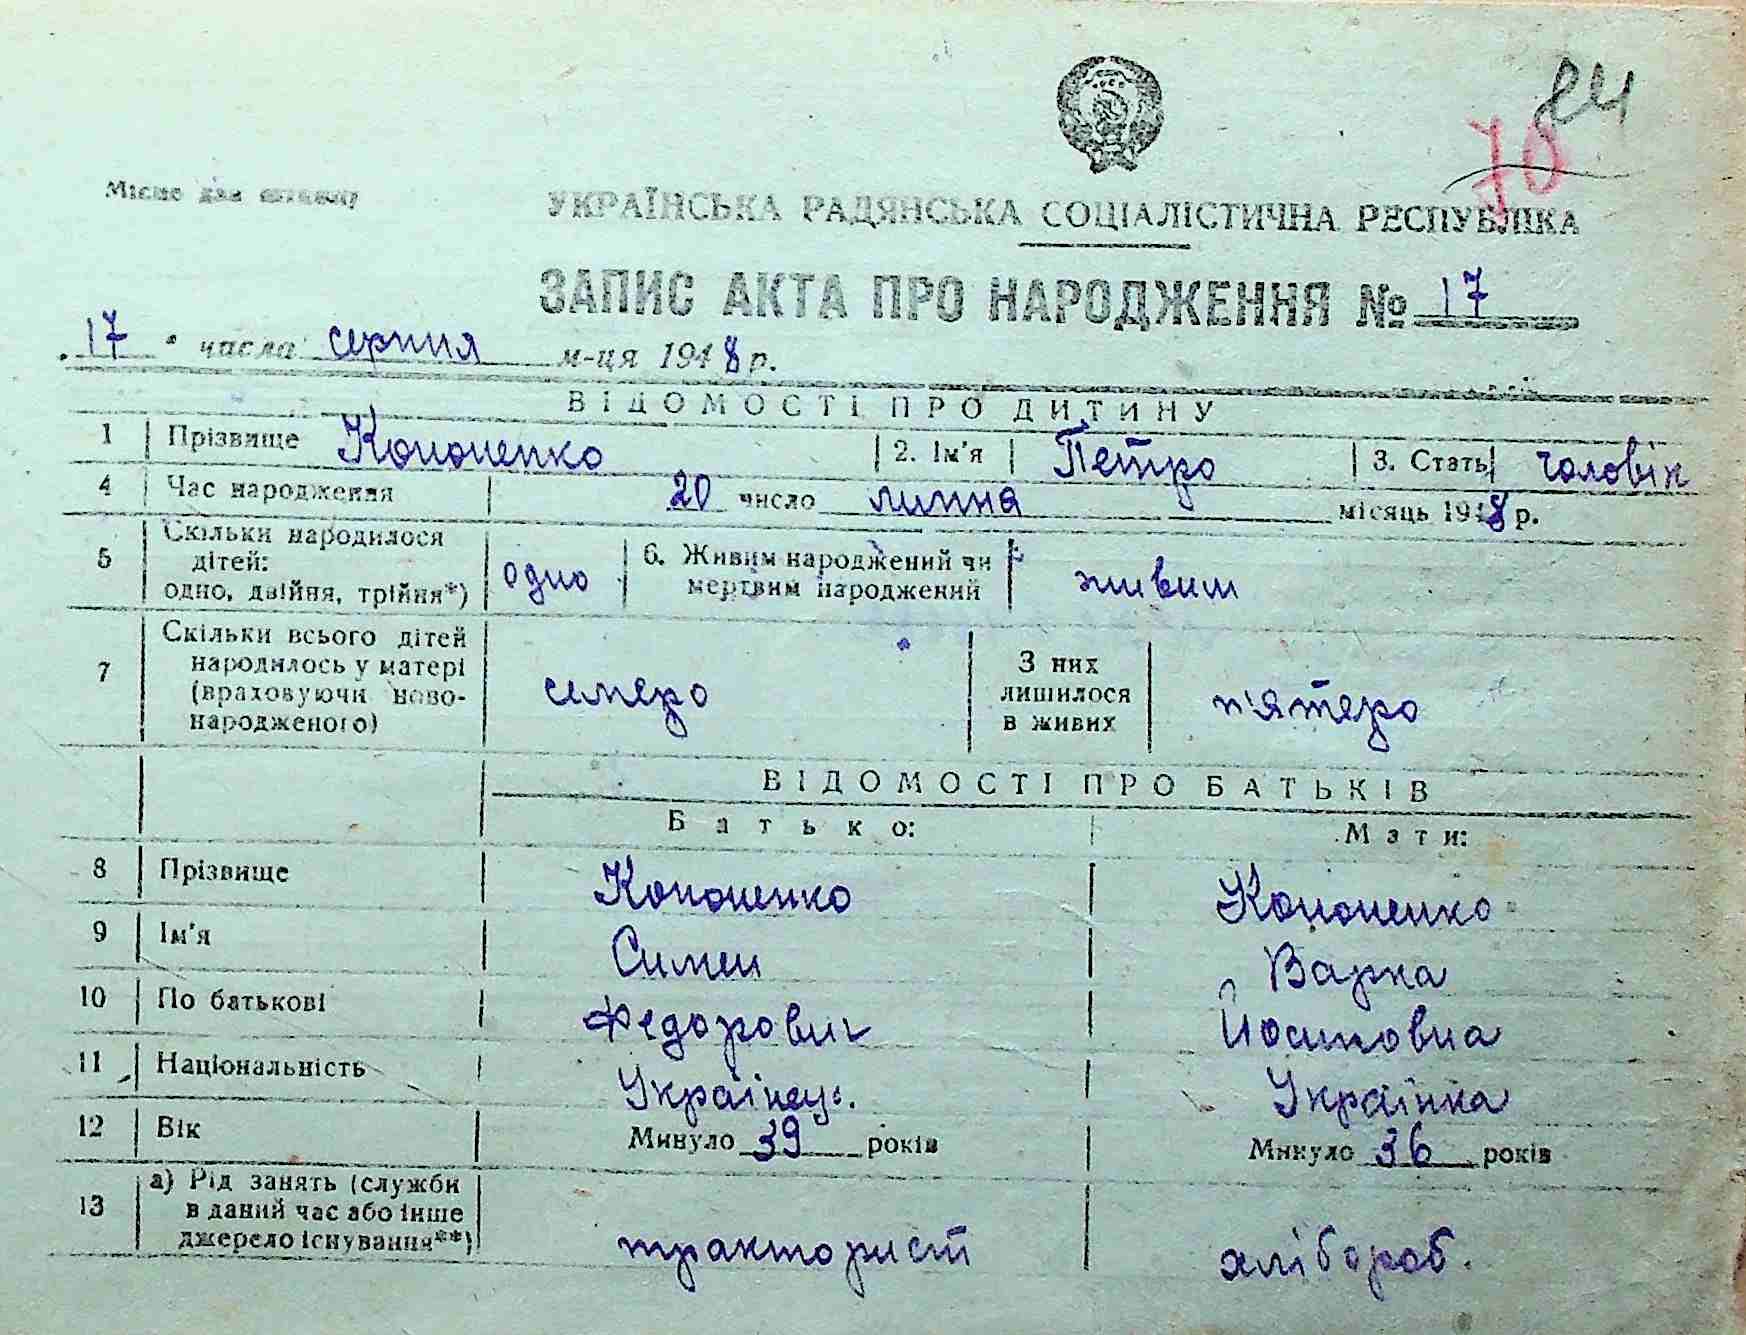 84
70
Місце для штампу
УКРАЇНСЬКА РАДЯНСЬКА СОЦІАЛІСТИЧНА РЕСПУБЛІКА
ЗАПИС АКТА ПРО НАРОДЖЕННЯ № 17
"17" числа серпня м-ця 1948 р.
ВІДОМОСТІ ПРО ДИТИНУ
1 Прізвище Кононенко 2. Ім'я Петро 3. Стать чоловіч
4 Час народження 20 число липня місяць 1948 р.
5 Скільки народилося дітей: одно, двійня, трійня*) одно 6. Живим народжений чи мертвим народжений живим
7 Скільки всього дітей народилось у матері (враховуючи новонародженого) семеро З них лишилося в живих п'ятеро
ВІДОМОСТІ ПРО БАТЬКІВ
Батько: Мати:
8 Прізвище Кононенко Кононенко
9 Ім'я Симен Варка
10 По батькові Федорович Йосиповна
11 Національність Українец. Українка
12 Вік Минуло 39 років Минуло 36 років
13 а) Рід занять (служби в даний час або інше джерело існування**) тракторист хлібороб.